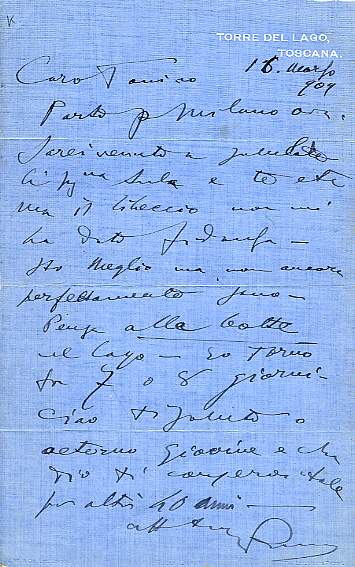 TORRE DEL LAGO,
TOSCANA.
16. Marzo
909
Caro
Parto p Milano ora.
Sarei venuto a
e te
ma il libeccio non mi
ha dato fidanza —
Sto meglio ma non ancora
perfettamente sano —
Pensa alla botte
sul lago — Io torno
fra 7 o 8 giorni —
Ciao ti saluto o
eterno giovine e che
Dio ti conservi tale
per altri 40 anni —